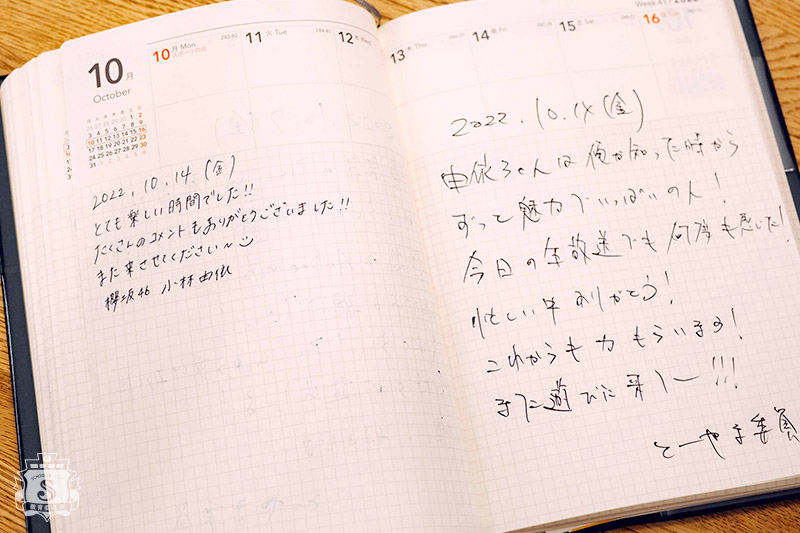 10月
October
10 月 Mon
スポーツの日
11 火 Tue
12 水 Wed
2022.10.14.(金)
とても楽しい時間でした!!
たくさんのコメントもありがとうございました!!
また来させてください〜
櫻坂46 小林由依
13 木 Thu
14 金 Fri
15 土 Sat
16
2022.10.14(金)
由依さんは俺が知った時から
ずっと魅力でいっぱいの人!
今日の生放送でも何度も感じた!
忙しい中ありがとう!
これからも力もらいます!
また遊びに来てー!!!
とーやま委員
S